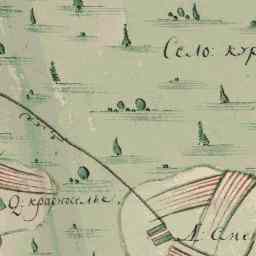 Село: кур
Q: красноселье.
Д. Спе